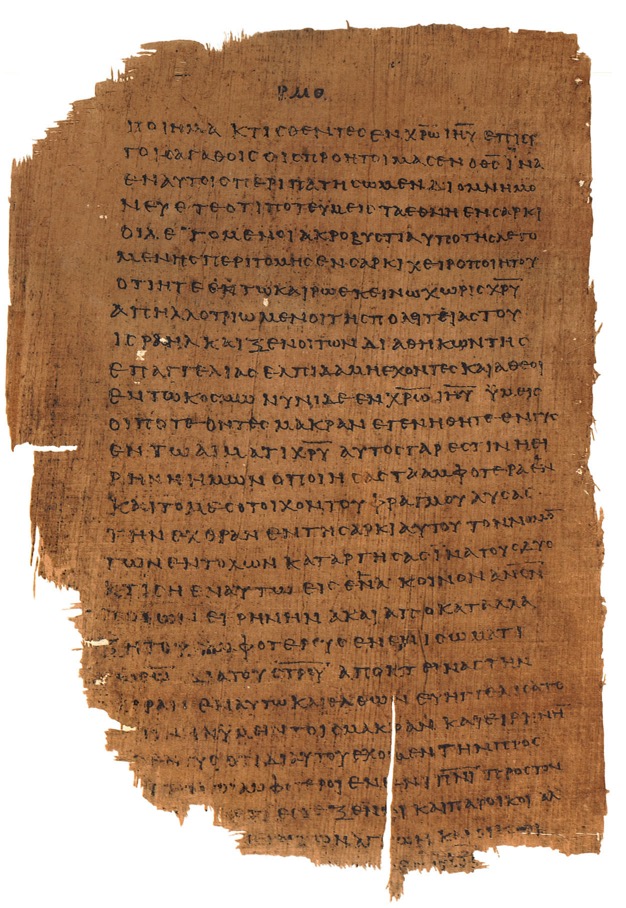 ΡΜΘ
ΠΟΙΗΜΑ ΚΤΙϹΘΕΝΤΕϹ ΕΝ Χ̅Ρ̅Ω̅ Ι̅Η̅Υ̅ ΕΠΙ ΕΡ
ΓΟΙϹ ΑΓΑΘΟΙϹ ΟΙϹ ΠΡΟΗΤΟΙΜΑϹΕΝ Ο Θ̅Ϲ̅ ΙΝΑ
ΕΝ ΑΥΤΟΙϹ ΠΕΡΙΠΑΤΗϹΩΜΕΝ ΔΙΟ ΜΝΗΜΟ
ΝΕΥΕΤΕ ΟΤΙ ΠΟΤΕ ΥΜΕΙϹ ΤΑ ΕΘΝΗ ΕΝ ϹΑΡΚΙ
ΟΙ ΛΕΓΟΜΕΝΟΙ ΑΚΡΟΒΥϹΤΙΑ ΥΠΟ ΤΗϹ ΛΕΓΟ
ΜΕΝΗϹ ΠΕΡΙΤΟΜΗϹ ΕΝ ϹΑΡΚΙ ΧΕΙΡΟΠΟΙΗΤΟΥ
ΟΤΙ ΗΤΕ ΕΝ ΤΩ ΚΑΙΡΩ ΕΚΕΙΝΩ ΧΩΡΙϹ Χ̅Ρ̅Υ̅
ΑΠΗΛΛΟΤΡΙΩΜΕΝΟΙ ΤΗϹ ΠΟΛΕΙΤΕΙΑϹ ΤΟΥ
ΙϹΡΑΗΛ ΚΑΙ ΞΕΝΟΙ ΤΩΝ ΔΙΑΘΗΚΩΝ ΤΗϹ
ΕΠΑΓΓΕΛΙΑϹ ΕΛΠΙΔΑ ΜΗ ΕΧΟΝΤΕϹ ΚΑΙ ΑΘΕΟΙ
ΕΝ ΤΩ ΚΟϹΜΩ ΝΥΝΙ ΔΕ ΕΝ Χ̅Ρ̅Ω̅ Ι̅Η̅Υ̅ ΥΜΕΙϹ
ΟΙ ΠΟΤΕ ΟΝΤΕϹ ΜΑΚΡΑΝ ΕΓΕΝΗΘΗΤΕ ΕΝΓΥϹ
ΕΝ ΤΩ ΑΙΜΑΤΙ Χ̅Ρ̅Υ̅ ΑΥΤΟϹ ΓΑΡ ΕΣΤΙΝ Η ΕΙ
ΡΗΝΗ ΗΜΩΝ Ο ΠΟΙΗϹΑϹ ΤΑ ΑΜΦΟΤΕΡΑ ΕΝ
ΚΑΙ ΤΟ ΜΕϹΟΤΟΙΧΟΝ ΤΟΥ ΦΡΑΓΜΟΥ ΛΥϹΑϹ
ΤΗΝ ΕΧΘΡΑΝ ΕΝ ΤΗ ϹΑΡΚΙ ΑΥΤΟΥ ΤΟΝ ΝΟΜΟΝ
ΤΩΝ ΕΝΤΟΛΩΝ ΚΑΤΑΡΓΗϹΑϹ ΙΝΑ ΤΟΥϹ ΔΥΟ
ΚΤΙϹΗ ΕΝ ΑΥΤΩ ΕΙϹ ΕΝΑ ΚΟΙΝΟΝ Α̅Ν̅Ο̅Ν̅
ΠΟΙΩΝ ΕΙΡΗΝΗΝ ΚΑΙ ΑΠΟΚΑΤΑΛΛΑ
ΞΗ ΤΟΥϹ ΑΜΦΟΤΕΡΟΥϹ ΕΝ ΕΝΙ ϹΩΜΑΤΙ
ΔΙΑ ΤΟΥ Ϲ̅Τ̅Ρ̅Ο̅Υ̅ ΑΠΟΚΤΕΙΝΑϹ ΤΗΝ
ΕΧΘΡΑΝ ΕΝ ΑΥΤΩ ΚΑΙ ΕΛΘΩΝ ΕΥΗΓΓΕΛΙϹΑΤΟ
ΕΙΡΗΝΗΝ ΥΜΙΝ ΤΟΙϹ ΜΑΚΡΑΝ ΚΑΙ ΕΙΡΗΝΗΝ
ΟΤΙ ΔΙ ΑΥΤΟΥ ΕΧΟΜΕΝ ΤΗΝ ΠΡΟϹ
ΑΜΦΟΤΕΡΟΙ ΕΝ ΕΝΙ Π̅Ν̅Ι̅ ΠΡΟϹ ΤΟΝ
ΞΕΝΟΙ ΚΑΙ ΠΑΡΟΙΚΟΙ ΑΛ
ΤΩΝ ΑΓΙΩΝ ΚΑΙ